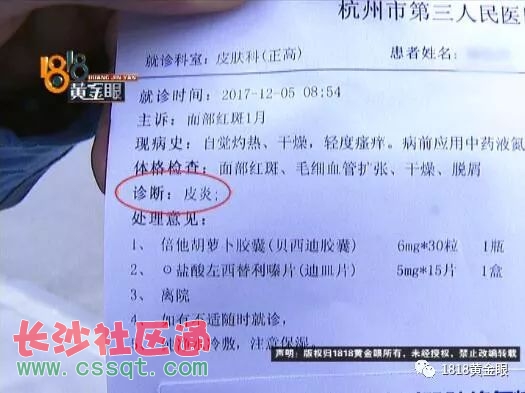 杭州市第三人民医
就诊科室：皮肤科(正高)
患者姓名：
1818
HUANGJIN YAN
黄金眼
就诊时间：2017-12-05 08:54
主诉：面部红斑1月
现病史：自觉灼热、干燥，轻度瘙痒。病前应用中药液氮
体格检查：面部红斑、毛细血管扩张、干燥、脱屑
诊断：皮炎;
处理意见：
1、倍他胡萝卜胶囊(贝西迪胶囊) 6mg*30粒 1瓶
2、⊙盐酸左西替利嗪片(迪皿片) 5mg*15片 1盒
3、离院
4、如有不适随时就诊，
冷敷，注意保湿。
长沙社区通
www.cssqt.com
声明：版权归1818黄金眼所有，未经授权，禁止改编转载
1818黄金眼